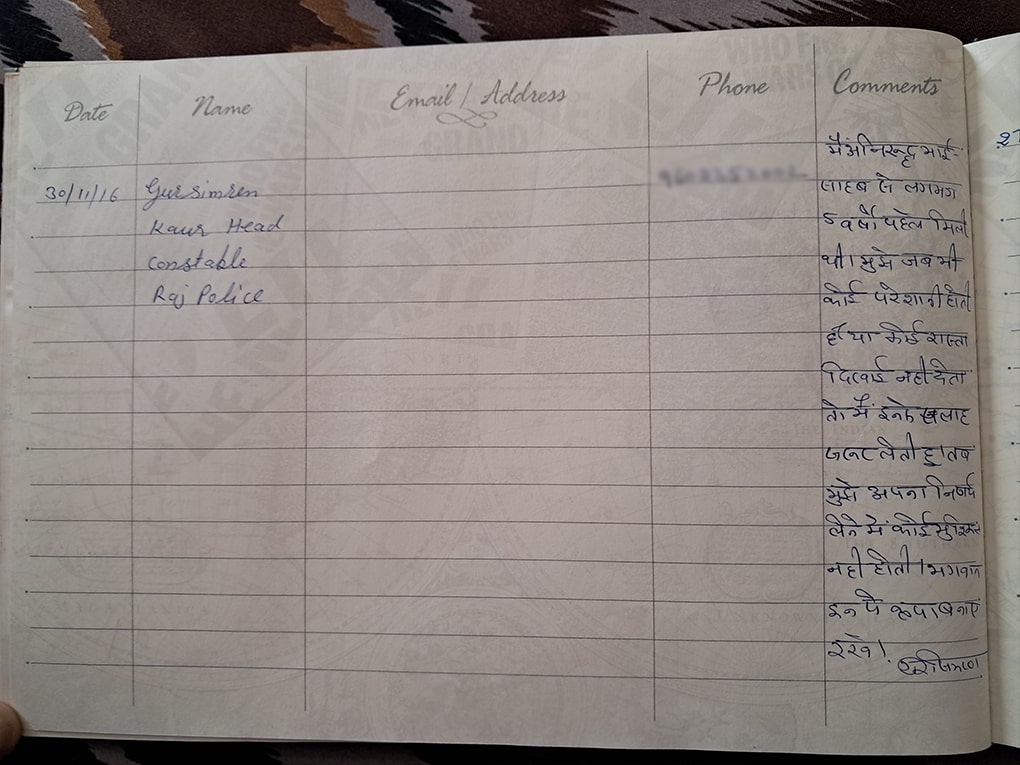 Date Name Email / Address Phone Comments
मैं अनिरूद्ध भाई-
30/11/16 Gursimren साहब से लगभग
Kaur Head 5 वर्षों पहले मिली
Constable थी। मुझे जब भी
Raj Police कोई परेशानी होती
है या कोई रास्ता
दिखाई नही देता
तो मैं इनसे सलाह
जरूर लेती हु। तब
मुझे अपना निर्णय
लेने में कोई मुश्किल
नही होती। भगवान
इन पे कृपा बनाएं
रखे।